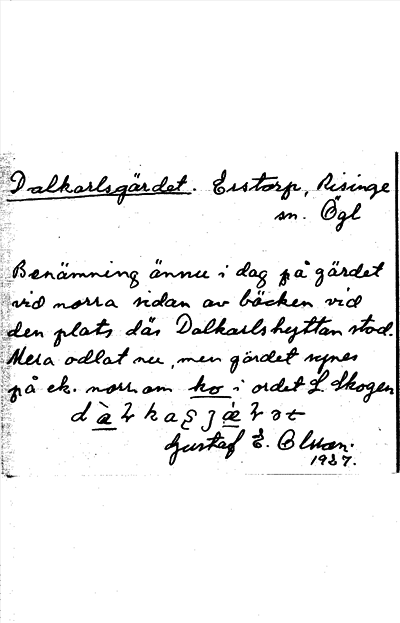 Dalkarlsgärdet. Erstorp, Risinge
sn. Ögl
Benämning ännu i dag på gärdet
vid norra sidan av bäcken vid
den plats där Dalkarlshyttan stod.
Mera odlat nu, men gärdet synes
på ek. norr om ko i ordet L. Skogen
Gustaf E. Olsson.
1937.